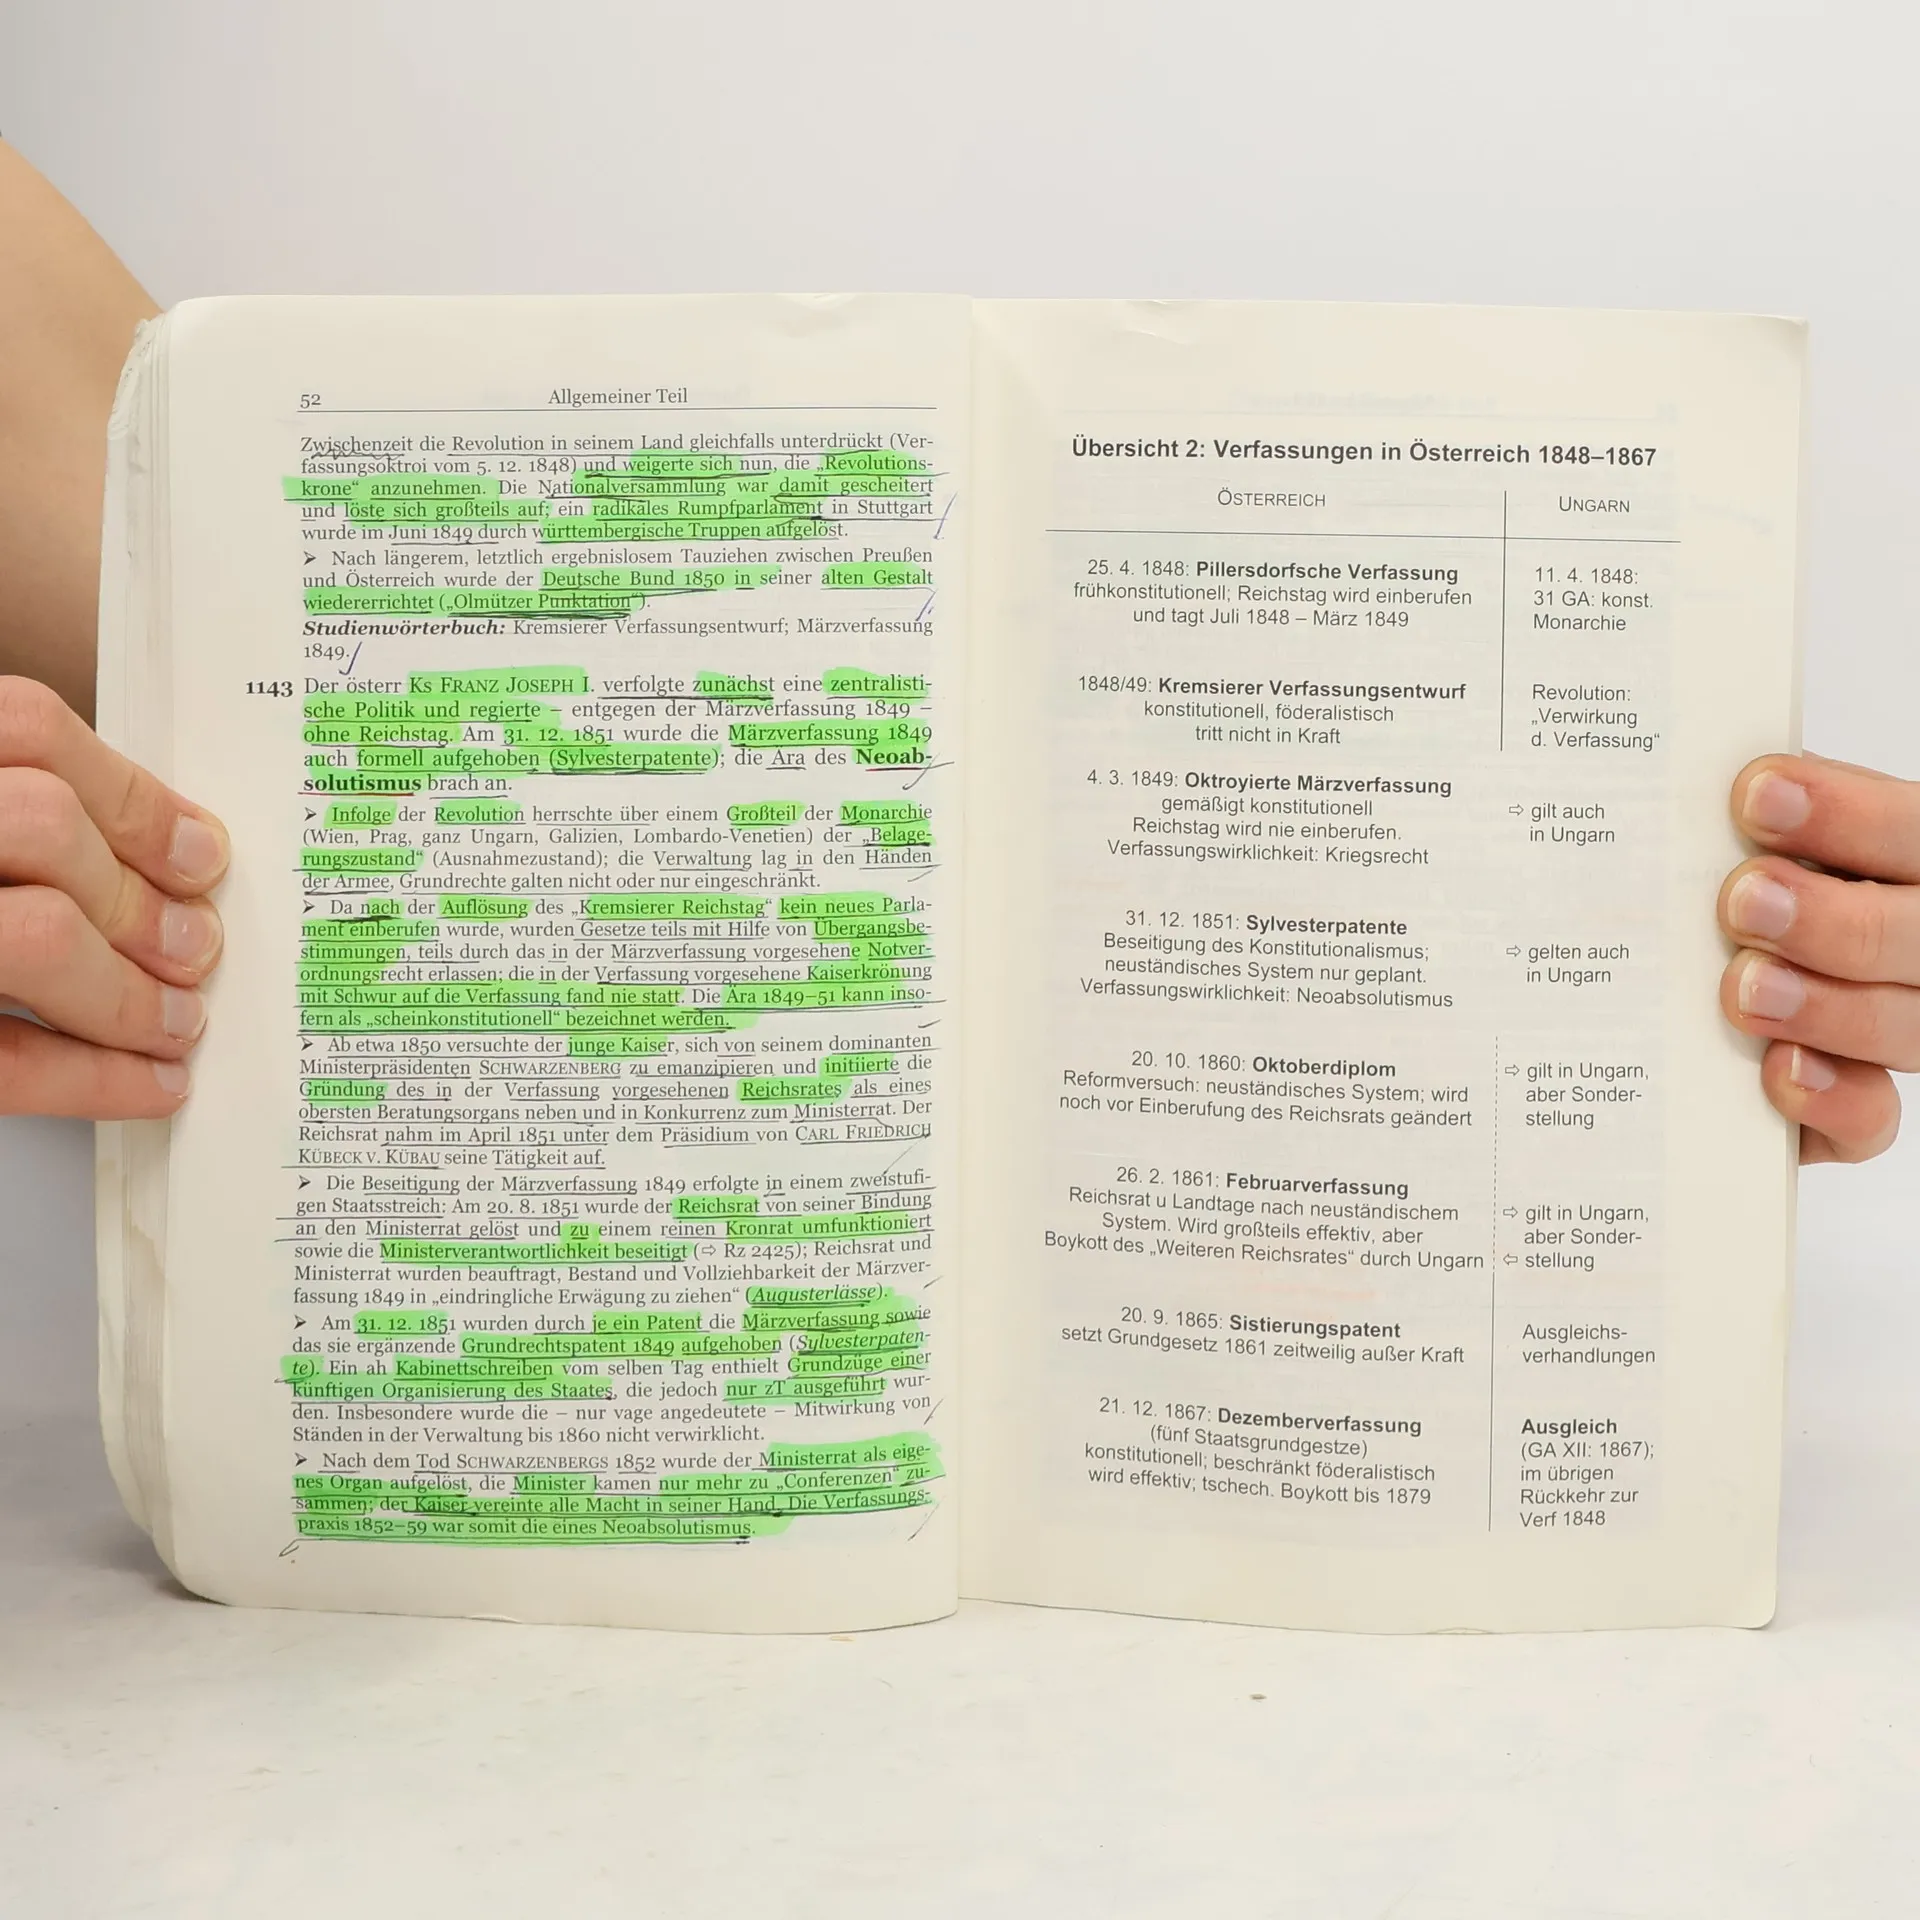 52
Allgemeiner Teil
Zwischenzeit die Revolution in seinem Land gleichfalls unterdrückt (Ver-
fassungsoktroi vom 5. 12. 1848) und weigerte sich nun, die „Revolutions-
krone“ anzunehmen. Die Nationalversammlung war damit gescheitert
und löste sich großteils auf; ein radikales Rumpfparlament in Stuttgart
wurde im Juni 1849 durch württembergische Truppen aufgelöst.
➢ Nach längerem, letztlich ergebnislosem Tauziehen zwischen Preußen
und Österreich wurde der Deutsche Bund 1850 in seiner alten Gestalt
wiedererrichtet („Olmützer Punktation“).
Studienwörterbuch: Kremsierer Verfassungsentwurf; Märzverfassung
1849.
1143 Der österr Ks FRANZ JOSEPH I. verfolgte zunächst eine zentralisti-
sche Politik und regierte – entgegen der Märzverfassung 1849 –
ohne Reichstag. Am 31. 12. 1851 wurde die Märzverfassung 1849
auch formell aufgehoben (Sylvesterpatente); die Ära des Neoab-
solutismus brach an.
➢ Infolge der Revolution herrschte über einem Großteil der Monarchie
(Wien, Prag, ganz Ungarn, Galizien, Lombardo-Venetien) der „Belage-
rungszustand“ (Ausnahmezustand); die Verwaltung lag in den Händen
der Armee, Grundrechte galten nicht oder nur eingeschränkt.
➢ Da nach der Auflösung des „Kremsierer Reichstag“ kein neues Parla-
ment einberufen wurde, wurden Gesetze teils mit Hilfe von Übergangsbe-
stimmungen, teils durch das in der Märzverfassung vorgesehene Notver-
ordnungsrecht erlassen; die in der Verfassung vorgesehene Kaiserkrönung
mit Schwur auf die Verfassung fand nie statt. Die Ära 1849–51 kann inso-
fern als „scheinkonstitutionell“ bezeichnet werden.
➢ Ab etwa 1850 versuchte der junge Kaiser, sich von seinem dominanten
Ministerpräsidenten SCHWARZENBERG zu emanzipieren und initiierte die
Gründung des in der Verfassung vorgesehenen Reichsrates als eines
obersten Beratungsorgans neben und in Konkurrenz zum Ministerrat. Der
Reichsrat nahm im April 1851 unter dem Präsidium von CARL FRIEDRICH
KÜBECK V. KÜBAU seine Tätigkeit auf.
➢ Die Beseitigung der Märzverfassung 1849 erfolgte in einem zweistufi-
gen Staatsstreich: Am 20. 8. 1851 wurde der Reichsrat von seiner Bindung
an den Ministerrat gelöst und zu einem reinen Kronrat umfunktioniert
sowie die Ministerverantwortlichkeit beseitigt (⇨ Rz 2425); Reichsrat und
Ministerrat wurden beauftragt, Bestand und Vollziehbarkeit der Märzver-
fassung 1849 in „eindringliche Erwägung zu ziehen“ (Augusterlässe).
➢ Am 31. 12. 1851 wurden durch je ein Patent die Märzverfassung sowie
das sie ergänzende Grundrechtspatent 1849 aufgehoben (Sylvesterpaten-
te). Ein ah Kabinettschreiben vom selben Tag enthielt Grundzüge einer
künftigen Organisierung des Staates, die jedoch nur zT ausgeführt wur-
den. Insbesondere wurde die – nur vage angedeutete – Mitwirkung von
Ständen in der Verwaltung bis 1860 nicht verwirklicht.
➢ Nach dem Tod SCHWARZENBERGS 1852 wurde der Ministerrat als eige-
nes Organ aufgelöst, die Minister kamen nur mehr zu „Conferenzen“ zu-
sammen; der Kaiser vereinte alle Macht in seiner Hand. Die Verfassungs-
praxis 1852–59 war somit die eines Neoabsolutismus.
Übersicht 2: Verfassungen in Österreich 1848–1867
ÖSTERREICH
UNGARN
25. 4. 1848: Pillersdorfsche Verfassung
frühkonstitutionell; Reichstag wird einberufen
und tagt Juli 1848 – März 1849
11. 4. 1848:
31 GA: konst.
Monarchie
1848/49: Kremsierer Verfassungsentwurf
konstitutionell, föderalistisch
tritt nicht in Kraft
Revolution:
„Verwirkung
d. Verfassung“
4. 3. 1849: Oktroyierte Märzverfassung
gemäßigt konstitutionell
Reichstag wird nie einberufen.
Verfassungswirklichkeit: Kriegsrecht
⇨ gilt auch
in Ungarn
31. 12. 1851: Sylvesterpatente
Beseitigung des Konstitutionalismus;
neuständisches System nur geplant.
Verfassungswirklichkeit: Neoabsolutismus
⇨ gelten auch
in Ungarn
20. 10. 1860: Oktoberdiplom
Reformversuch: neuständisches System; wird
noch vor Einberufung des Reichsrats geändert
⇨ gilt in Ungarn,
aber Sonder-
stellung
26. 2. 1861: Februarverfassung
Reichsrat u Landtage nach neuständischem
System. Wird großteils effektiv, aber
Boykott des „Weiteren Reichsrates“ durch Ungarn
⇨ gilt in Ungarn,
aber Sonder-
⇦ stellung
20. 9. 1865: Sistierungspatent
setzt Grundgesetz 1861 zeitweilig außer Kraft
Ausgleichs-
verhandlungen
21. 12. 1867: Dezemberverfassung
(fünf Staatsgrundgestze)
konstitutionell; beschränkt föderalistisch
wird effektiv; tschech. Boykott bis 1879
Ausgleich
(GA XII: 1867);
im übrigen
Rückkehr zur
Verf 1848